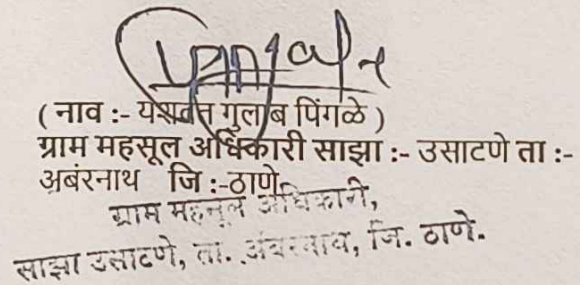 ( नाव :- यशवंत गुलाब पिंगळे )
ग्राम महसूल अधिकारी साझा :- उसाटणे ता :-
अबंरनाथ जि :-ठाणे
ग्राम महसूल अधिकारी,
साझा उसाटणे, ता. अंबरनाथ, जि. ठाणे.